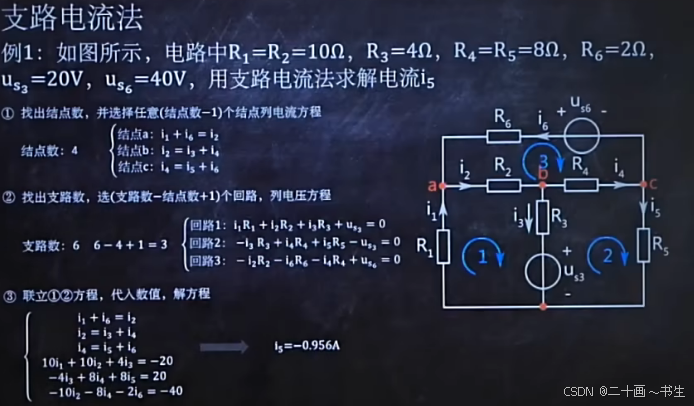 支路电流法
例1：如图所示，电路中R₁=R₂=10Ω，R₃=4Ω，R₄=R₅=8Ω，R₆=2Ω，
uₛ₃=20V，uₛ₆=40V，用支路电流法求解电流i₅
① 找出结点数，并选择任意(结点数-1)个结点列电流方程
结点数：4
结点a: i₁ + i₆ = i₂
结点b: i₂ = i₃ + i₄
结点c: i₄ = i₅ + i₆
② 找出支路数，选(支路数-结点数+1)个回路，列电压方程
支路数：6 6-4+1=3
回路1: i₁R₁ + i₂R₂ + i₃R₃ + uₛ₃ = 0
回路2: -i₃R₃ + i₄R₄ + i₅R₅ - uₛ₃ = 0
回路3: -i₂R₂ - i₆R₆ - i₄R₄ + uₛ₆ = 0
③ 联立①②方程，代入数值，解方程
i₁ + i₆ = i₂
i₂ = i₃ + i₄
i₄ = i₅ + i₆
10i₁ + 10i₂ + 4i₃ = -20
-4i₃ + 8i₄ + 8i₅ = 20
-10i₂ - 8i₄ - 2i₆ = -40
i₅=-0.956A
R₆ i₆ + uₛ₆ -
a i₂ R₂ 3 b R₄ i₄ c
i₁ i₃ R₃ i₅
R₁ 1 2 R₅
+ uₛ₃ -
CSDN @二十画~书生